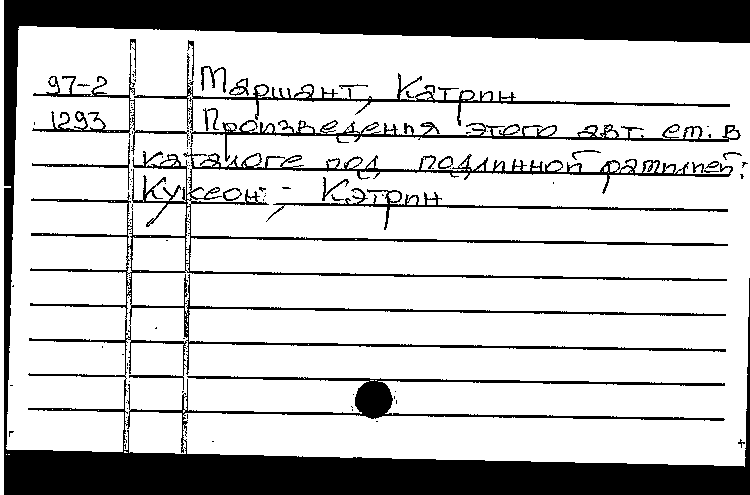 97-2 Маршант, Катрин
1293 Произведения этого авт. см. в
каталоге под подлинной фамилией:
Куксон, Кэтрин